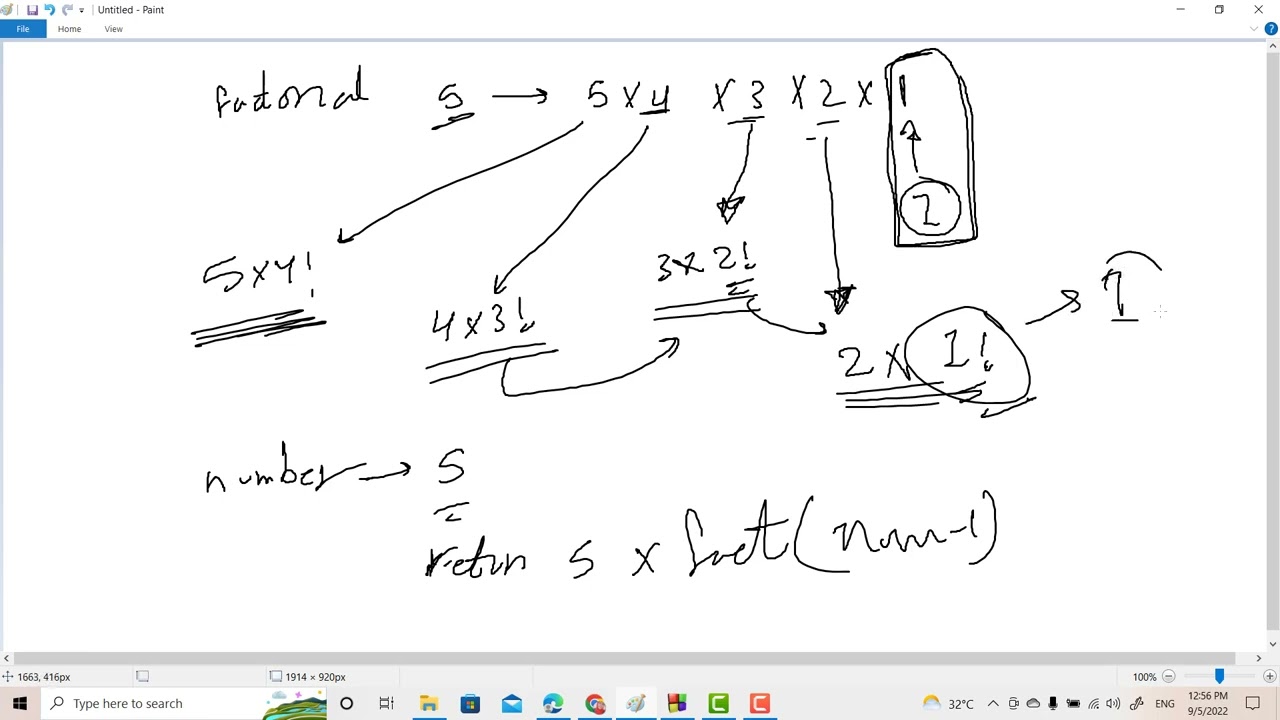 Untitled - Paint
File Home View
factorial 5 → 5 x 4 x 3 x 2 x 1
1
5 x 4!
3 x 2!
4 x 3!
1
2 x 1!
number → 5
return 5 x fact(num-1)
1663, 416px 1914 × 920px 100%
Type here to search 32°C ENG 12:56 PM
9/5/2022